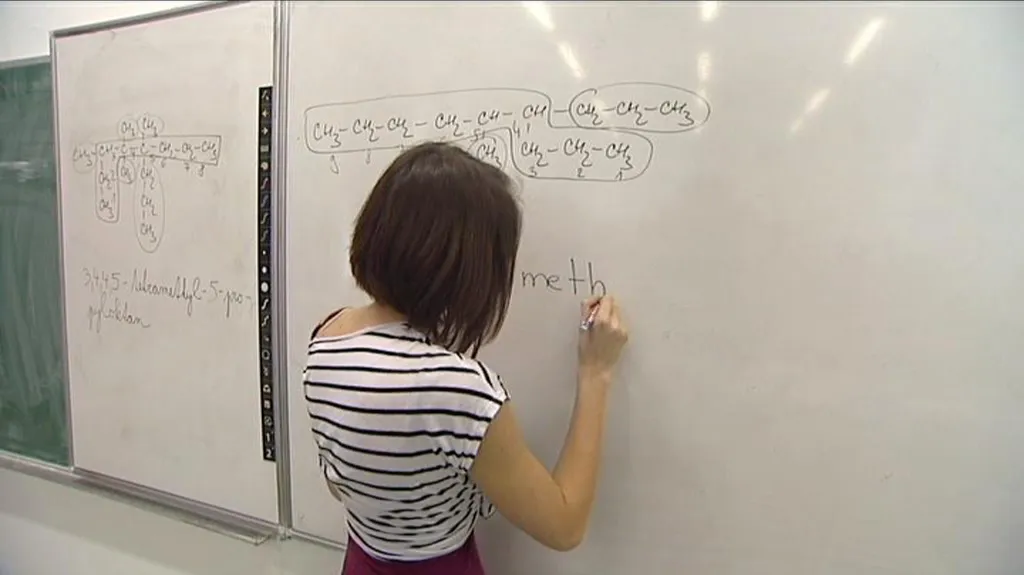 CH3 CH3
CH3-CH-C-C-CH2-CH2-CH3
CH2 CH3 CH2
CH3 CH2
CH3
3,4,4,5-tetramethyl-5-pro-
pyloktan
CH3-CH2-CH2-CH2-CH-CH-CH2-CH2-CH3
CH3 CH2-CH2-CH3
5 4
3 2 1
meth
1
2